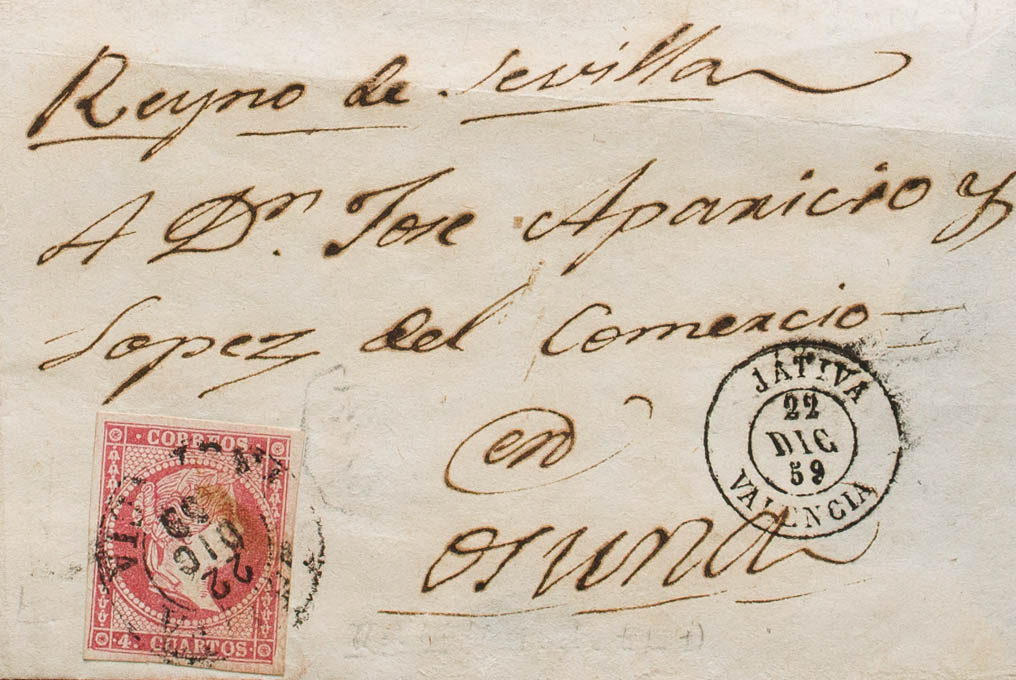 Reyno de Sevilla
A Dn. Jose Aparicio y
Lopez del Comercio
en
Osuna
JÁTIVA
22
DIC
59
VALENCIA
CORREOS
4 CUARTOS
22
DIC
59